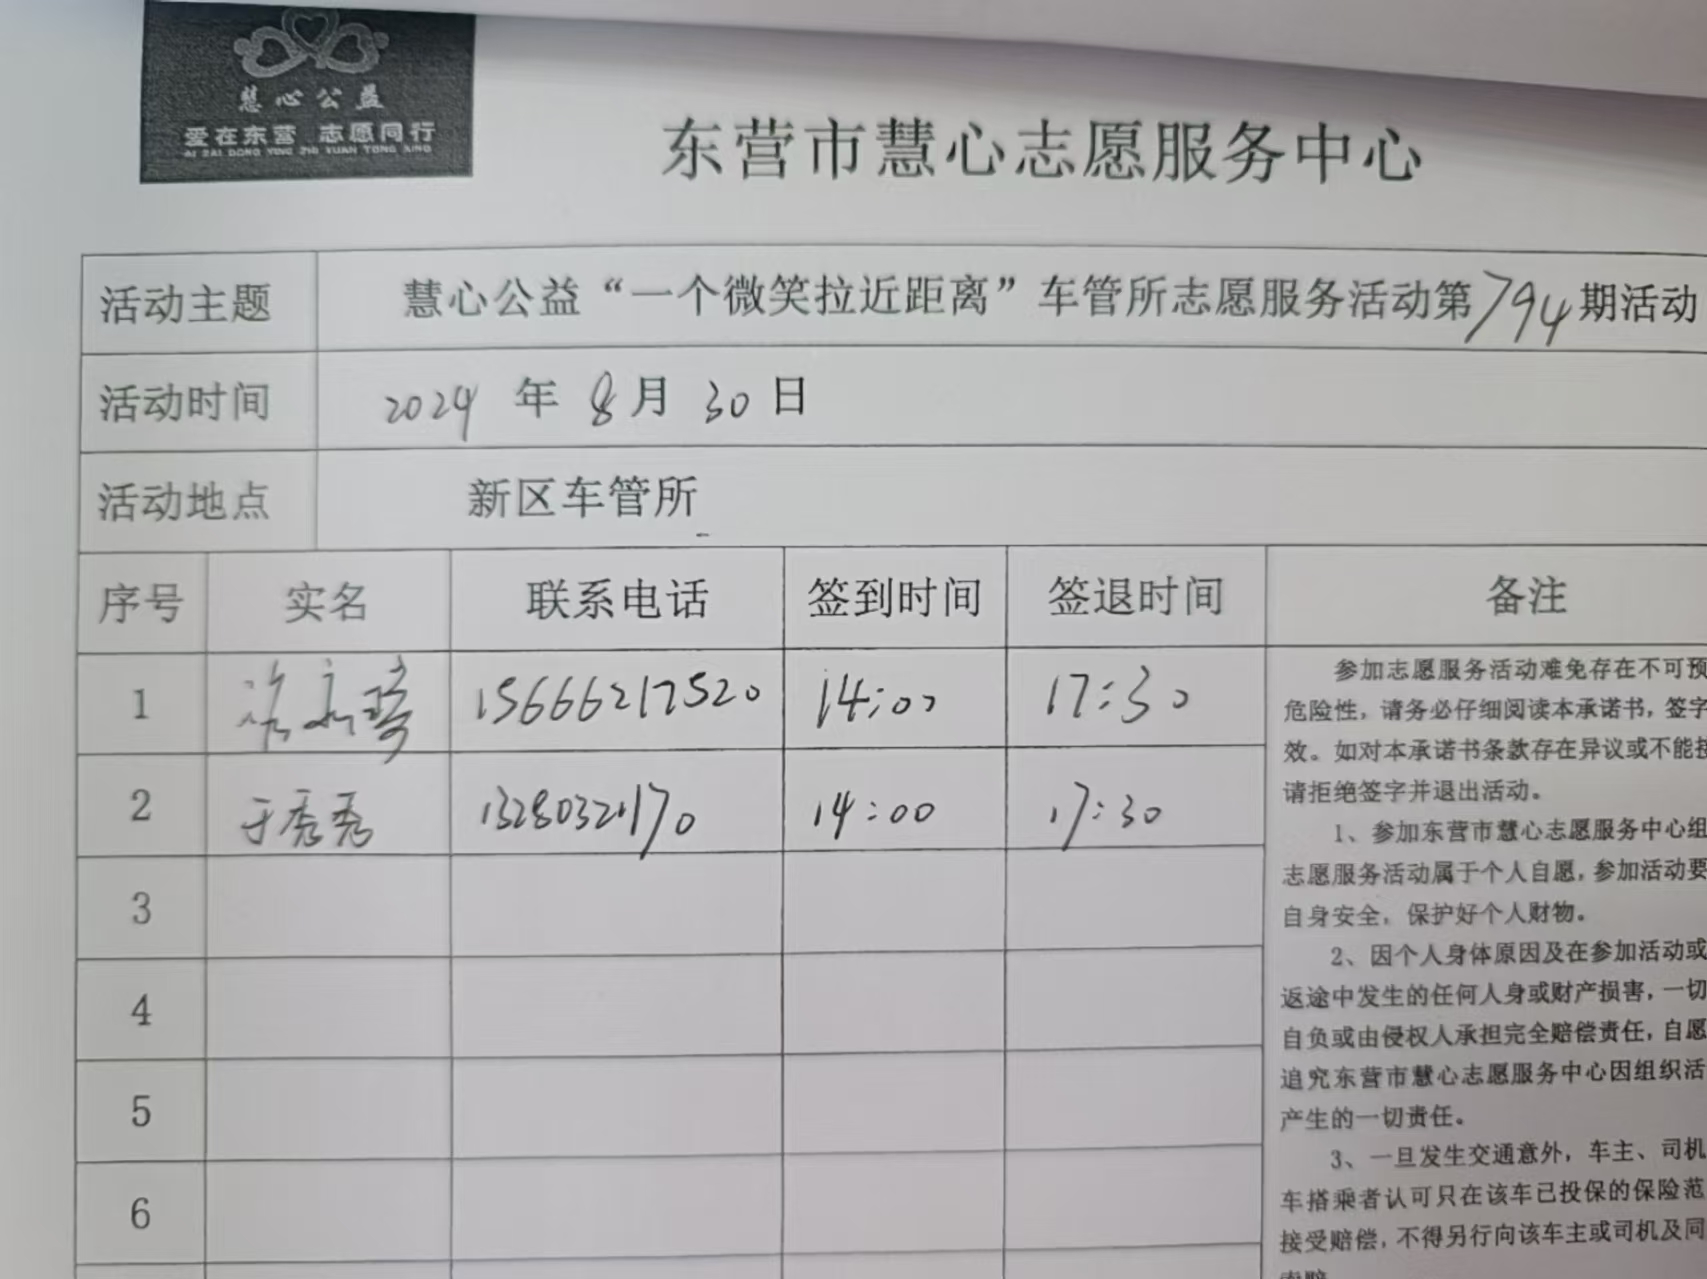 慧心公益
爱在东营 志愿同行
AI ZAI DONG YING ZHI YUAN TONG XING
东营市慧心志愿服务中心
活动主题 慧心公益“一个微笑拉近距离”车管所志愿服务活动第794期活动
活动时间 2024年8月30日
活动地点 新区车管所
序号 实名 联系电话 签到时间 签退时间 备注
1 15666217520 14:00 17:30
2 于秀秀 13280322170 14:00 17:30
3
4
5
6
参加志愿服务活动难免存在不可预
危险性，请务必仔细阅读本承诺书，签字
效。如对本承诺书条款存在异议或不能接
请拒绝签字并退出活动。
1、参加东营市慧心志愿服务中心组
志愿服务活动属于个人自愿，参加活动要
自身安全，保护好个人财物。
2、因个人身体原因及在参加活动或
返途中发生的任何人身或财产损害，一切
自负或由侵权人承担完全赔偿责任，自愿
追究东营市慧心志愿服务中心因组织活
产生的一切责任。
3、一旦发生交通意外，车主、司机
车搭乘者认可只在该车已投保的保险范
接受赔偿，不得另行向该车主或司机及同